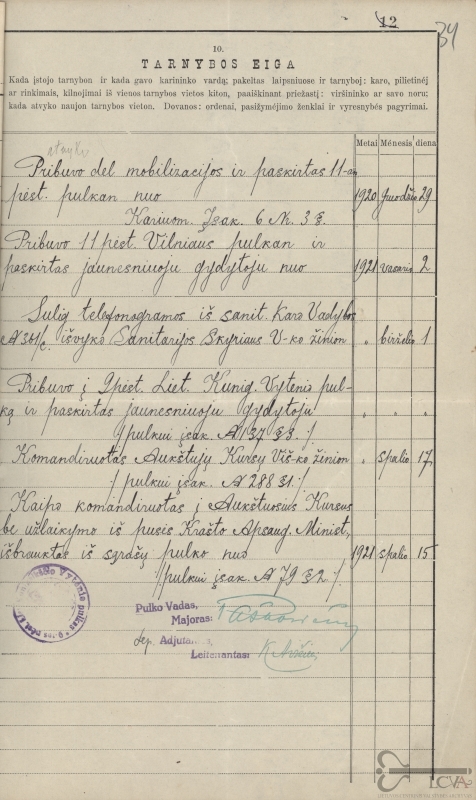 12
34
10.
TARNYBOS EIGA
Kada įstojo tarnybon ir kada gavo karininko vardą; pakeltas laipsniuose ir tarnyboj; karo, pilietinėj
ar rinkimais, kilnojimai iš vienos tarnybos vietos kiton, paaiškinant priežastį: viršininko ar savo noru;
kada atvyko naujon tarnybos vieton. Dovanos: ordenai, pasižymėjimo ženklai ir vyresnybės pagyrimai.
Metai Mėnesis diena
atvyko
Pribuvo dėl mobilizacijos ir paskirtas 11-an
pėst. pulkan nuo 1920 Gruodžio 29
Kariuom. Įsak. 6 N. 3 §.
Pribuvo 11 pėst. Vilniaus pulkan ir
paskirtas jaunesniuoju gydytoju nuo 1921 vasario 2
Sulig telefonogramos iš sanit. Karo Vadybos
išvyko Sanitarijos Skyriaus V-ko žinion " birželio 1
Pribuvo į 9 pėst. Liet. Kunig. Vytenio pul-
ką ir paskirtas jaunesniuoju gydytoju " " "
/pulkui įsak. N 137 § 3./
Komandiruotas Aukštųjų Kursų Virš-ko žinion " spalio 17
/pulkui įsak. N 288 § 1./
Kaipo komandiruotas į Aukštuosius Kursus
be užlaikymo iš pusės Krašto Apsaug. Minist,
išbrauktas iš sąrašų pulko nuo 1921 spalio 15
/pulkui įsak. N 79 § 2./
Pulko Vadas,
Majoras:
Adjutantas,
Leitenantas:
LCVA